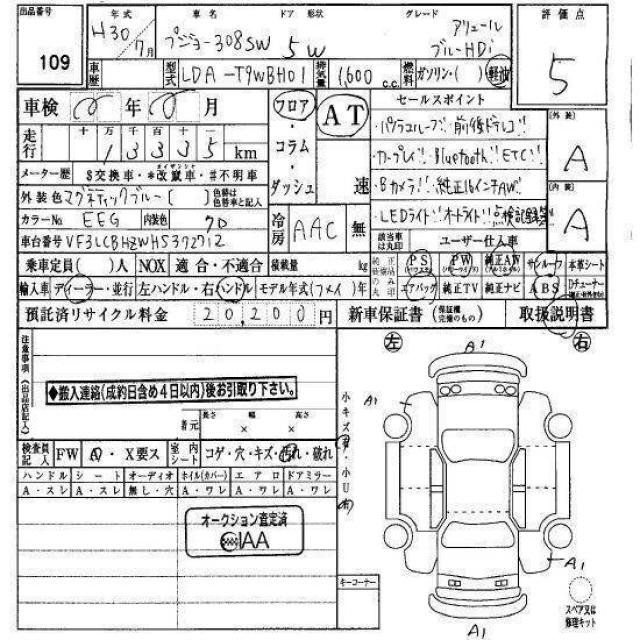 出品番号 年式 車名 ドア 形状 グレード 評価点
109 H30 7月 プジョー308SW 5W アリュール ブルーHDi 5
車歴 型式 LDA-T9WBH01 排気量 1,600 c.c. 燃料 ガソリン・( ) 軽油
車検 年 月 フロア・コラム・ダッシュ AT 速 セールスポイント 外装 A
走行 十 万 千 百 十 一
1 3 3 3 5 km
・パノラマルーフ! 前後ドラレコ!
メーター歴 $交換車・*改竄車・#不明車
カイザンシャ
・カープレイ! Bluetooth! ETC! 内装 A
外装色 マグネティックブルー [ ] 色替は色替車と記入
・Bカメラ! 純正16インチAW!
カラーNo. EEG 内装色 7D 冷房 AAC 無
・LEDライト! オートライト! 点検記録簿
車台番号 VF3LCBHZWHS372712 該当車は丸印 ユーザー仕入車
乗車定員( )人 NOX 適合・不適合 積載量 kg 純正装備品のみ丸印 PS (パワステ) PW (パワーウインド) 純正AW (アルミホイル) サンルーフ 本革シート
輸入車 ディーラー・並行 左ハンドル・右ハンドル モデル年式(フメイ)年 エアバッグ 純正TV 純正ナビ ABS Dチューナー
預託済リサイクル料金 20,200円 新車保証書 (保証継続完備のもの) 取扱説明書
注意事項(出品店記入)
左 右
A1
◆搬入連絡(成約日含め4日以内)後お引取り下さい。
A1
車元 長さ × 幅 × 高さ
検査員記入 FW A・X要ス 室内シート コゲ・穴・キズ・汚れ・破れ
小キズ 小U
ハンドル シート オーディオ ホイル(カバー) エアロ ドアミラー
A・スレ A・スレ 無し・穴 A・ワレ A・ワレ A・ワレ
オークション査定済
IAA
A1
キーコーナー
スペア又は修理キット
A1